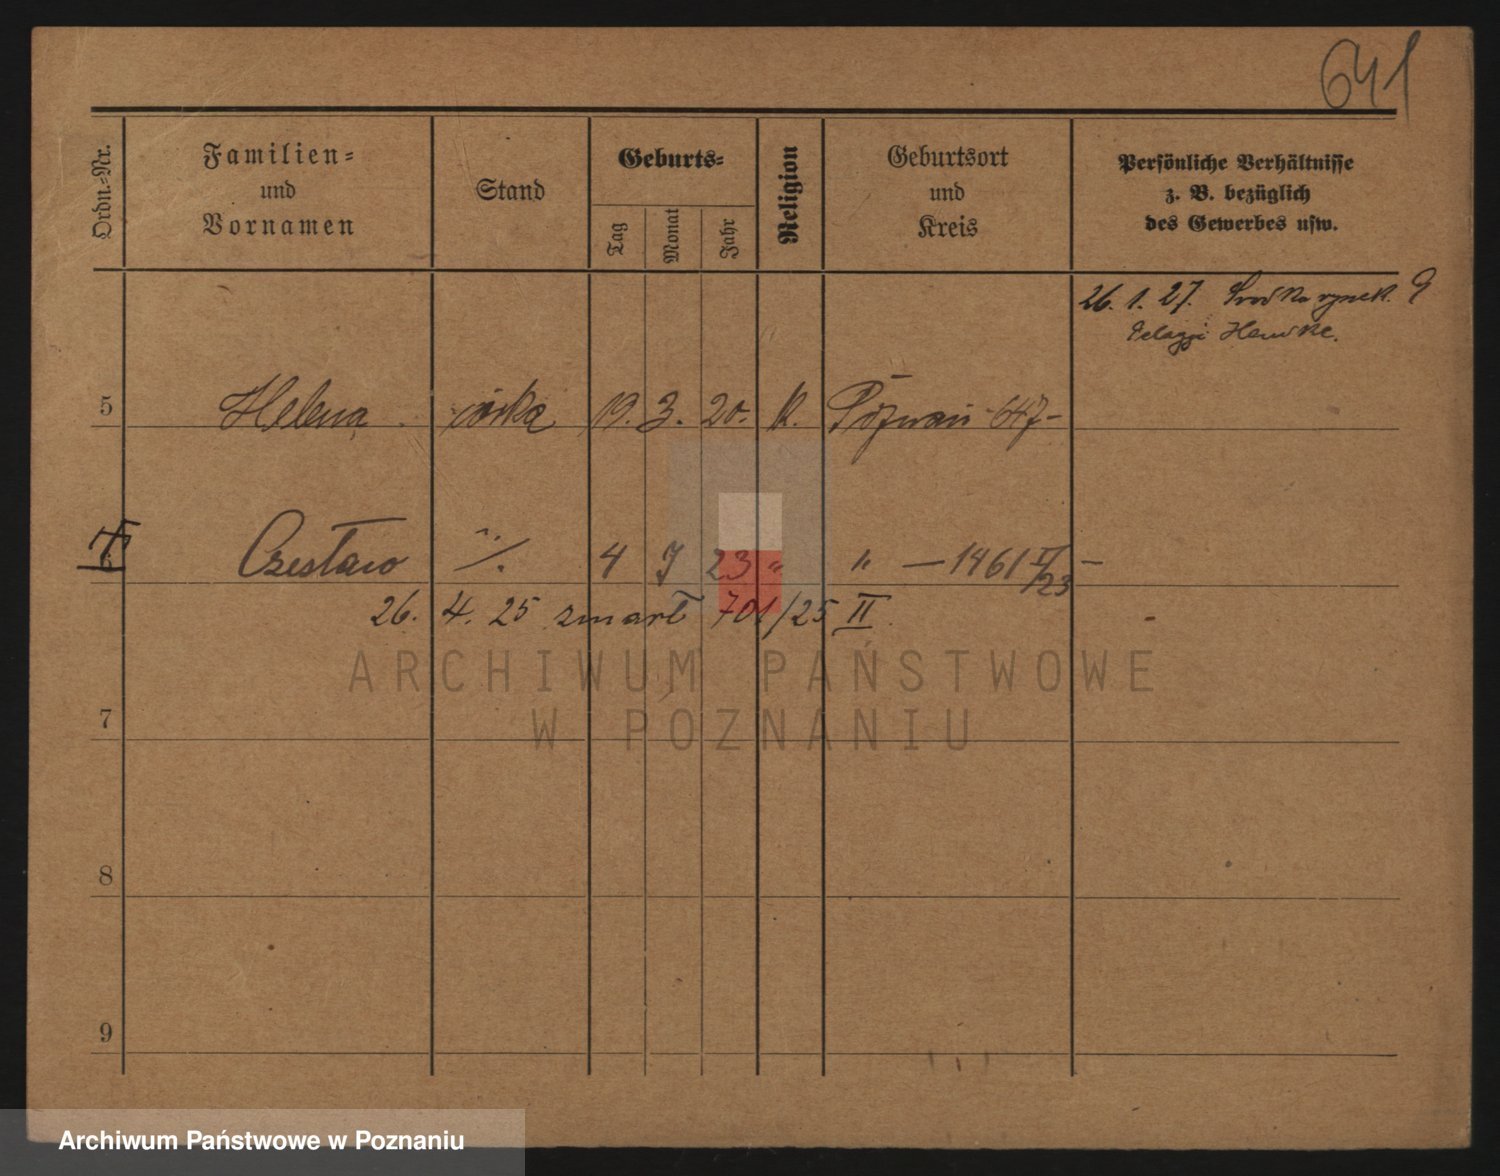 641
Ordn.-Nr.
Familien-
und
Vornamen
Stand
Geburts-
Tag
Monat
Jahr
Religion
Geburtsort
und
Kreis
Persönliche Verhältnisse
z. B. bezüglich
des Gewerbes usw.
26. 1. 27. Środka rynek 9
Pelagji
5 Helena córka 19. 3. 20. K. Poznań - 647 -
6 Czesław ·/· 4 7 23 " " — 1461 II/23 —
26. 4. 25 zmarł 701/25 II
ARCHIWUM PAŃSTWOWE
W POZNANIU
7
8
9
Archiwum Państwowe w Poznaniu